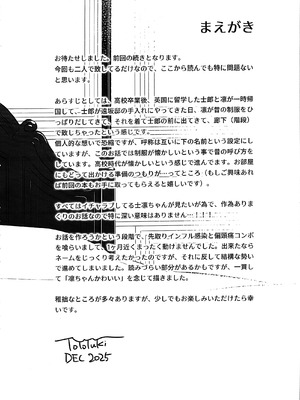 まえがき
お待たせしました。前回の続きとなります。
今回も二人で致してるだけなので、ここから読んでも特に問題ない
と思います。
あらすじとしては、高校卒業後、英国に留学した士郎と凛が一時帰
国して、士郎が遠坂邸の手入れにやってきた日、凛が昔の制服をひ
っぱりだしてきて、それを着て士郎の前に出てきて、廊下（階段）
で致しちゃったという感じです。
個人的な想いで恐縮ですが、呼称は互いに下の名前という設定にし
ていますが、このお話では制服が懐かしいという事で昔の呼び方を
しています。高校時代が懐かしいという感じで進んでます。お部屋
にもどって出かける準備のつもりが…ってところ（もしご興味あれ
ば前回の本もお手に取ってもらえると嬉しいです）。
すべてはイチャラブしてる士凛ちゃんが見たいが為で、作為ありま
くりのお話なので特に深い意味はありません…！！！
お話を作ろうかという段階で、先取りインフル感染と偏頭痛コンボ
を喰らいまして、1ヶ月近くまったく動けませんでした。出来たなら
ネームをじっくり考えたかったのですが、それに反して結構な勢い
で進めてしまいました。読みづらい部分があるかもですが、一貫し
て「凛ちゃんかわいい」を念じて描きました。
稚拙なところが多々ありますが、少しでもお楽しみいただけたら幸
いです。
TOTOTUKI
DEC 2025